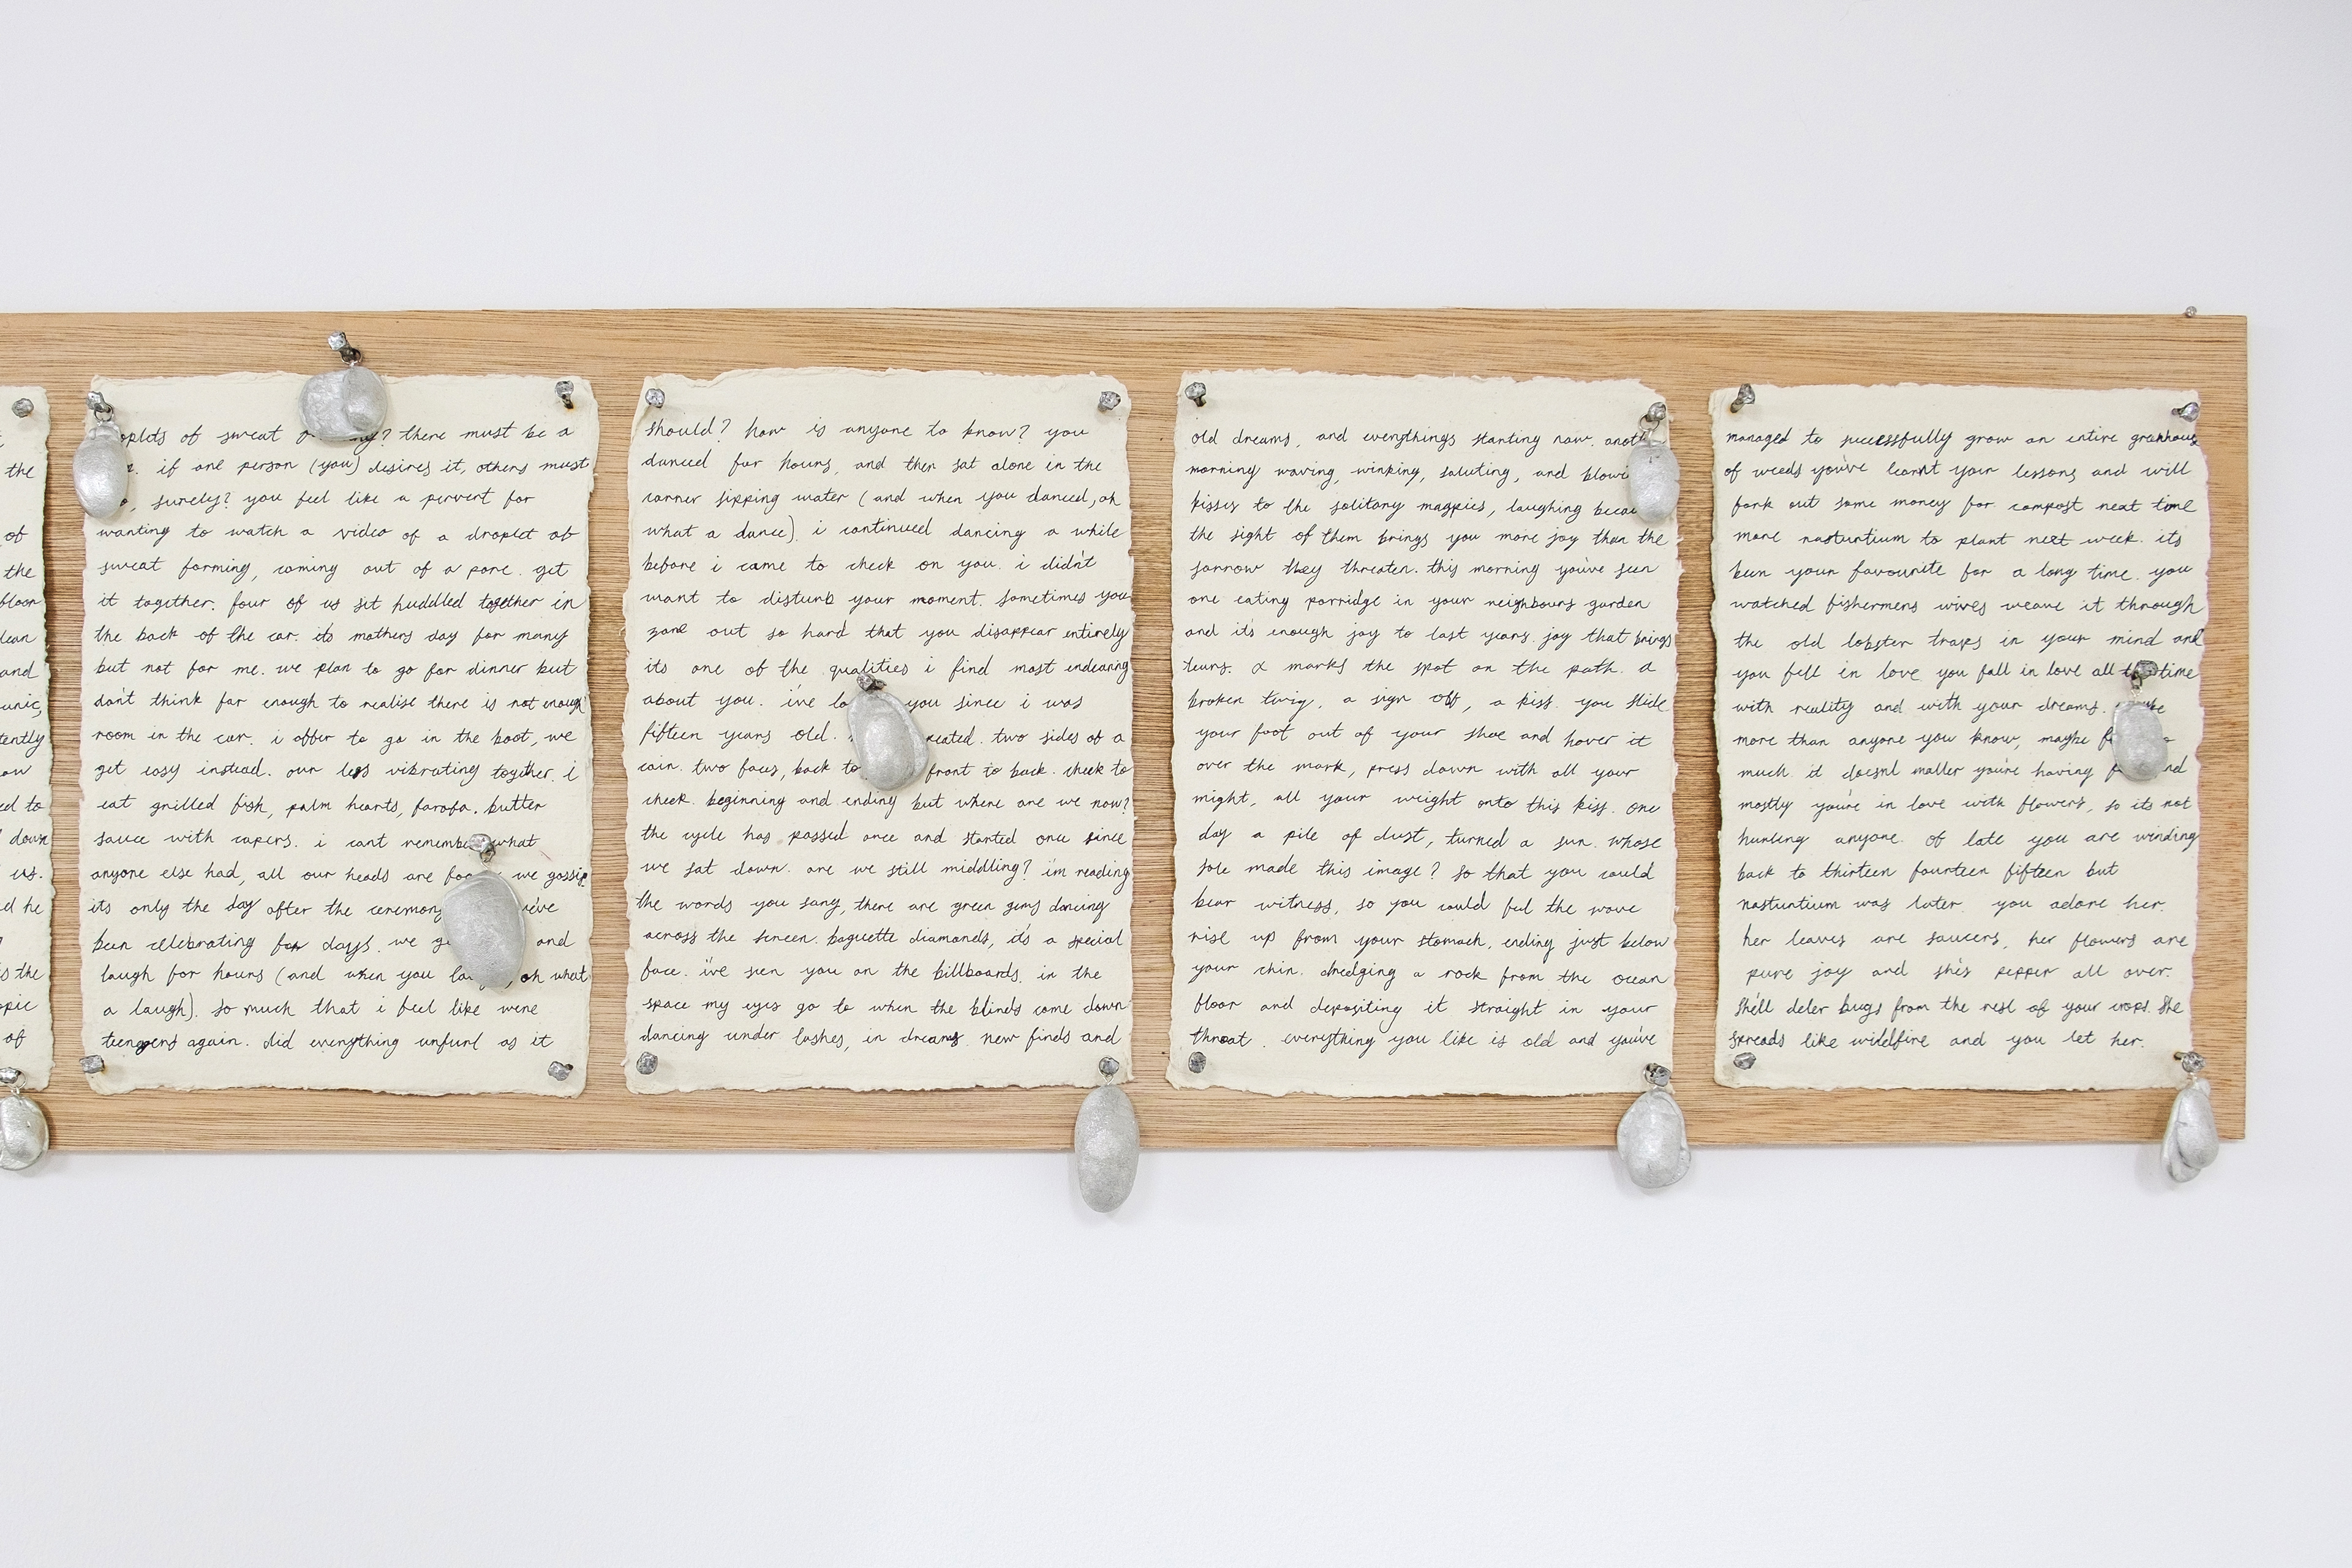 the
of
the
floor
lean
and
unic,
tently
ow
ed to
down
us.
d he
s the
opic
of
oplets of sweat there must be a
if one person (you) desires it, others must
surely? you feel like a pervert for
wanting to watch a video of a droplet of
sweat forming, coming out of a pore. get
it together. four of us sit huddled together in
the back of the car. its mothers day for many
but not for me. we plan to go for dinner but
don't think far enough to realise there is not enough
room in the car. i offer to go in the boot, we
get cosy instead. our legs vibrating together. i
eat grilled fish, palm hearts, farofa. butter
sauce with capers. i cant remember what
anyone else had, all our heads are we gossip
its only the day after the ceremony we've
been celebrating for days. we and
laugh for hours (and when you oh what
a laugh). so much that i feel like were
teenagers again. did everything unfurl as it
should? how is anyone to know? you
danced for hours, and then sat alone in the
corner sipping water (and when you danced, oh
what a dance). i continued dancing a while
before i came to check on you. i didn't
want to disturb your moment. sometimes you
zone out so hard that you disappear entirely
its one of the qualities i find most endearing
about you. i've you since i was
fifteen years old. two sides of a
coin. two faces, back to front to back. cheek to
cheek. beginning and ending but where are we now?
the cycle has passed once and started once since
we sat down. are we still middling? i'm reading
the words you sang, there are green gems dancing
across the screen. baguette diamonds, it's a special
face. i've seen you on the billboards. in the
space my eyes go to when the blinds come down
dancing under lashes, in dreams. new finds and
old dreams, and everythings starting now.
morning waving, winking, saluting, and
kisses to the solitary magpies, laughing
the sight of them brings you more joy than the
sorrow they threaten. this morning you've seen
one eating porridge in your neighbours garden
and it's enough joy to last years. joy that brings
tears. x marks the spot on the path. a
broken twig, a sign off, a kiss. you slide
your foot out of your shoe and hover it
over the mark, press down with all your
might, all your weight onto this kiss. one
day a pile of dust, turned a sun. whose
sole made this image? so that you could
bear witness, so you could feel the wave
rise up from your stomach, ending just below
your chin. dredging a rock from the ocean
floor and depositing it straight in your
throat. everything you like is old and you've
managed to successfully grow an entire greenhouse
of weeds you've learnt your lessons and will
fork out some money for compost next time
more nasturtium to plant next week. its
been your favourite for a long time. you
watched fishermens wives weave it through
the old lobster traps in your mind and
you fell in love you fall in love all time
with reality and with your dreams.
more than anyone you know, maybe
much. it doesnt matter you're having
mostly you're in love with flowers, so its not
hurting anyone. of late you are winding
back to thirteen fourteen fifteen but
nasturtium was later. you adore her.
her leaves are saucers, her flowers are
pure joy and she's pepper all over.
she'll deter bugs from the rest of your crops. she
spreads like wildfire and you let her.